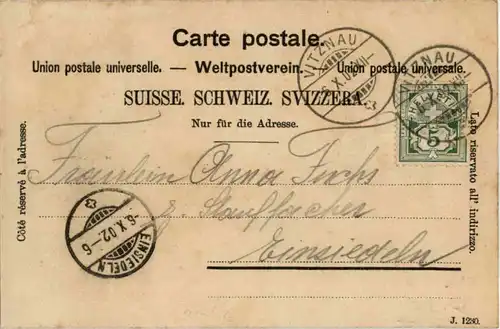 Carte postale.
Union postale universelle. — Weltpostverein. — Union postale universale.
SUISSE. SCHWEIZ. SVIZZERA.
Nur für die Adresse.
Côté réservé à l'adresse.
Lato riservato all' indirizzo.
VITZNAU
VITZNAU
5
Fräulein Anna Fuchs
z. Stauffacher
Einsiedeln
-6.X.02.-6
EINSIEDELN
J. 1230.